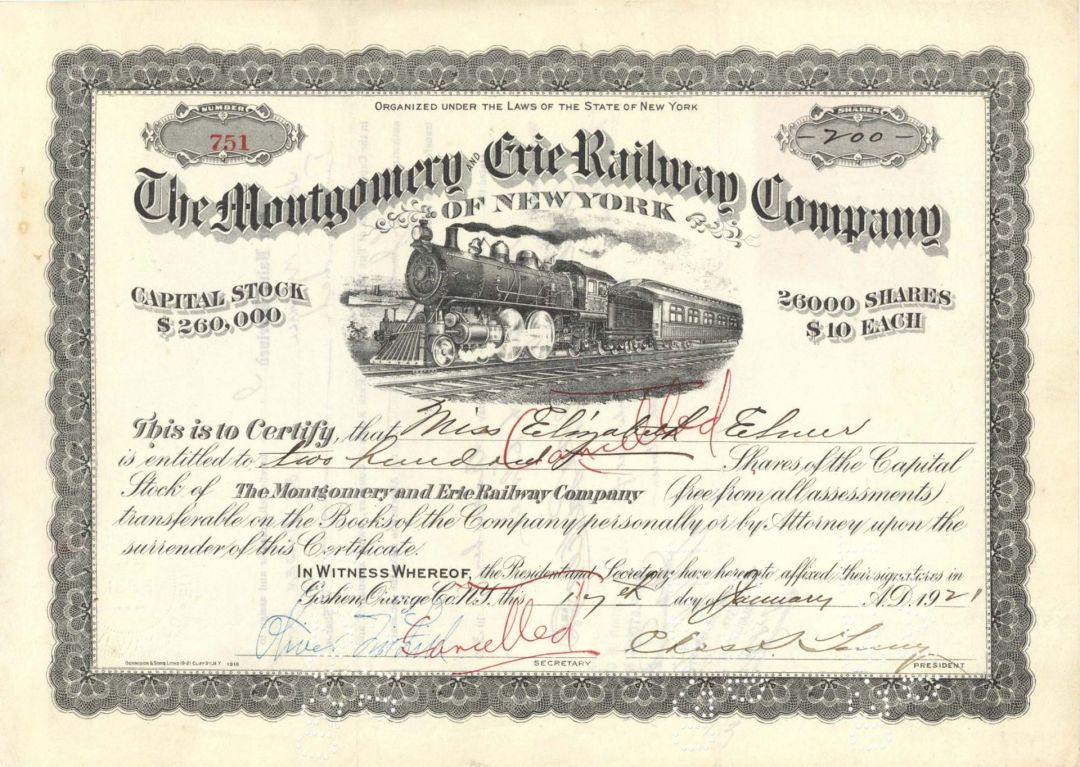 ORGANIZED UNDER THE LAWS OF THE STATE OF NEW YORK
NUMBER
751
SHARES
-200-
The Montgomery AND Erie Railway Company
OF NEW YORK
CAPITAL STOCK
$ 260,000
26000 SHARES
$ 10 EACH
This is to Certify, that Miss Elizabeth Elmer
is entitled to two hundred Shares of the Capital
Stock of The Montgomery and Erie Railway Company (free from all assessments)
transferable on the Books of the Company personally or by Attorney upon the
surrender of this Certificate.
Cancelled
IN WITNESS WHEREOF, the President and Secretary have hereunto affixed their signatures in
Goshen, Orange Co. N.Y. this 17th day of January A.D. 1921
Cancelled
SECRETARY
Chas. S.
PRESIDENT
DENNISON & SONS, LITHO 19-21 CLIFF ST. N.Y. 1916